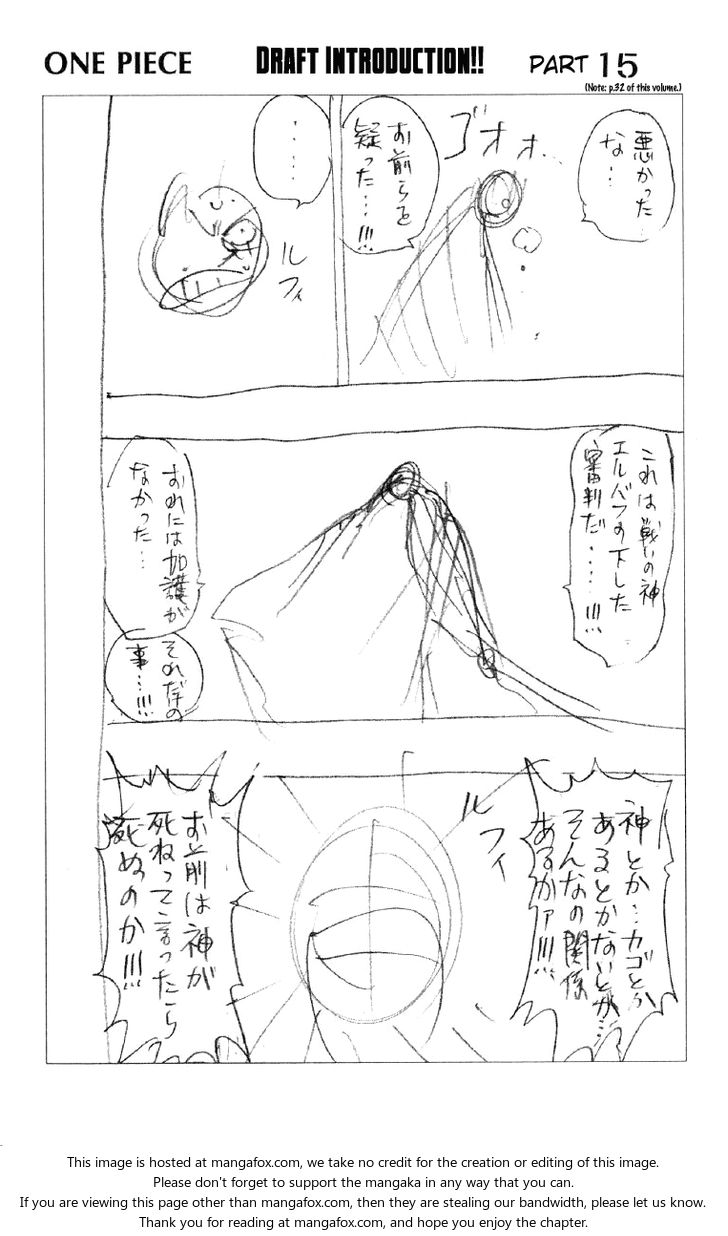 ONE PIECE
DRAFT INTRODUCTION!!
PART 15
(Note: p.32 of this volume.)
悪かった
な…
ゴオォ…
お前らを
疑った…!!!
……
ルフィ
これは戦いの神
エルバフの下した
審判だ……!!!
おれには加護が
なかった…
それだけの
事…!!!
神とか…カゴとか
あるとかないとか…
そんなの関係
あるかァ!!!
ルフィ
お前は神が
死ねって言ったら
死ぬのか!!!
This image is hosted at mangafox.com, we take no credit for the creation or editing of this image.
Please don't forget to support the mangaka in any way that you can.
If you are viewing this page other than mangafox.com, then they are stealing our bandwidth, please let us know.
Thank you for reading at mangafox.com, and hope you enjoy the chapter.